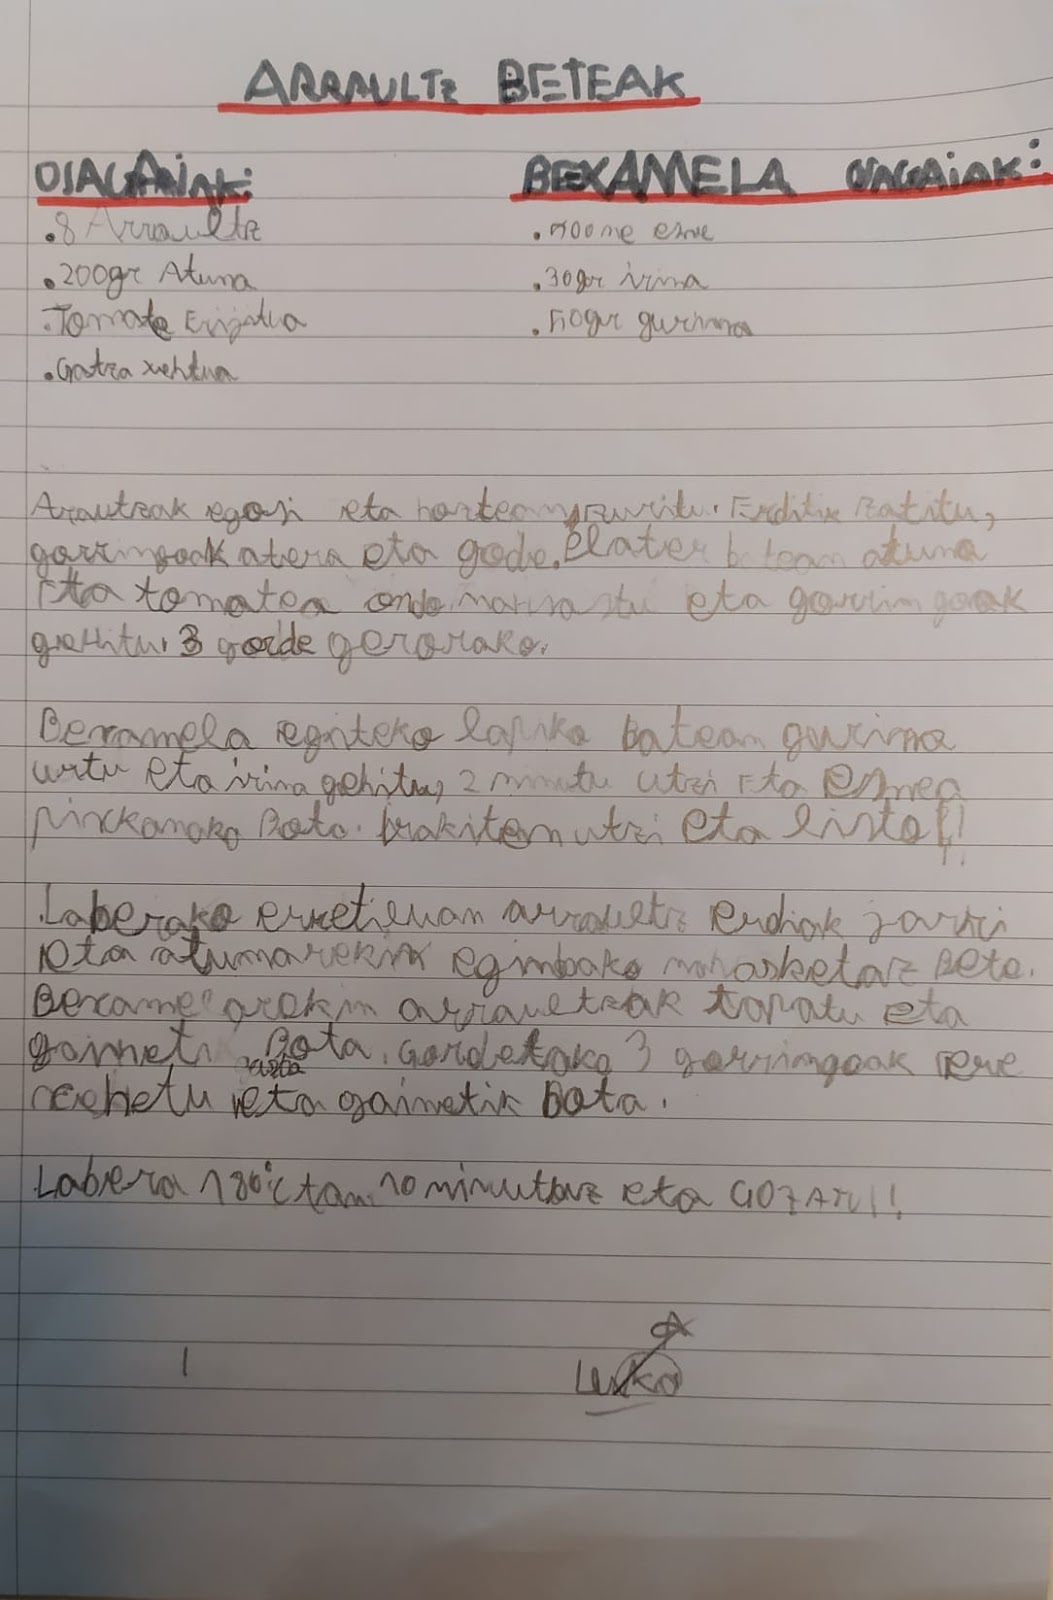 ARRAULTZ BETEAK
OSAGAIAK:
.8 Arraultz
.200gr Atuna
.Tomate Erijitua
.Gatza xehtua
BEXAMELA OSAGAIAK:
.700me esne
.30gr irina
.50gr gurina
Arautzak egosi eta hoztean, zuritu. Erditik Zatitu,
gorringoak atera eta gode. Plater bateam atuna
Eta tomatea ondo nahastu eta gorringoak
gehitu. 3 gorde gerorako.
Bexamela egiteko lapiko batean gurina
urtu eta irina gehitu, 2 minutu utzi Eta Esnea
pinckanako Bota. Irakiten utzi eta listo!!
Laberako erretiluan arraultz erdiak jarri
eta atunarekin eginbako nahasketaz Bete.
Bexamelarekin arraultzak tapatu eta
gainetik gazta Bota. Gordetako 3 gorringoak ere
xehetu eta gainetik bota.
Labera 180°c tan 10 minutuz eta GOZATU!!